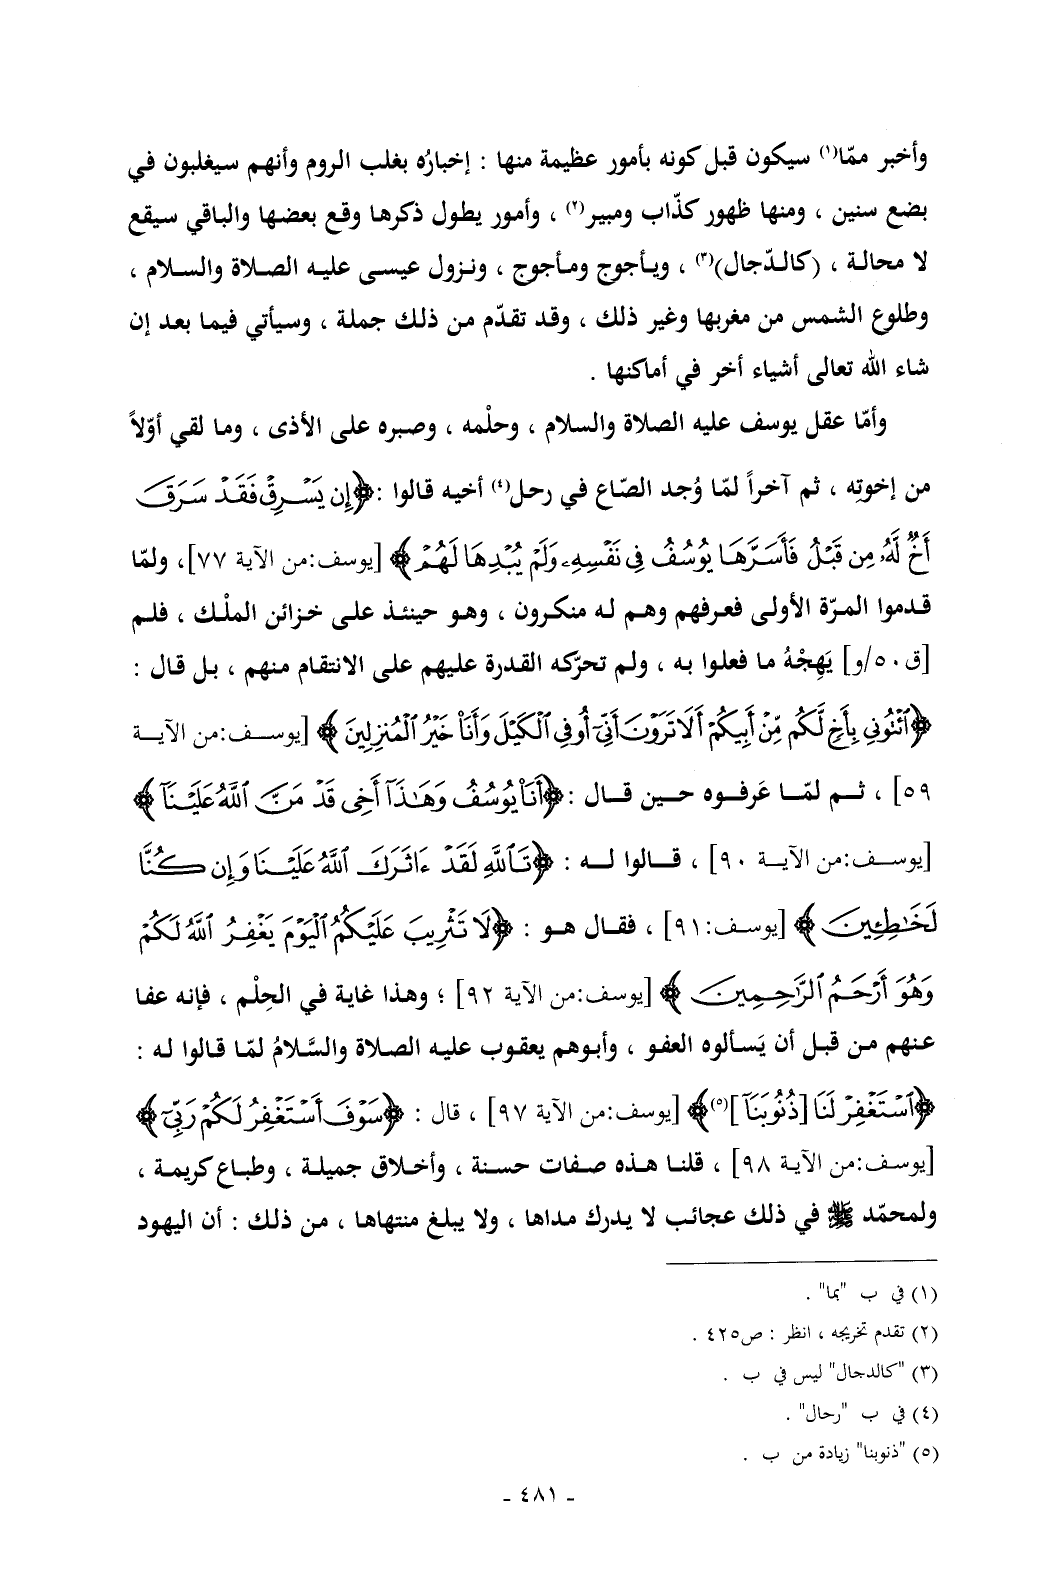 وأخبر ممّا(١) سيكون قبل كونه بأمور عظيمة منها : إخبارُه بغلب الروم وأنهم سيغلبون في
بضع سنين ، ومنها ظهور كذّاب ومبير(٢) ، وأمور يطول ذكرها وقع بعضها والباقي سيقع
لا محالة ، (كالدّجال)(٣) ، ويأجوج ومأجوج ، ونزول عيسى عليه الصلاة والسلام ،
وطلوع الشمس من مغربها وغير ذلك ، وقد تقدّم من ذلك جملة ، وسيأتي فيما بعد إن
شاء الله تعالى أشياء أخر في أماكنها .
وأمّا عقل يوسف عليه الصلاة والسلام ، وحلْمه ، وصبره على الأذى ، وما لقي أوّلاً
من إخوتِه ، ثم آخراً لمّا وُجد الصّاع في رحل(٤) أخيه قالوا :﴿إِن يَسْرِقْ فَقَدْ سَرَقَ
أَخٌ لَّهُۥ مِن قَبْلُ فَأَسَرَّهَا يُوسُفُ فِى نَفْسِهِۦ وَلَمْ يُبْدِهَا لَهُمْ﴾ [يوسف:من الآية ٧٧]، ولمّا
قدموا المرّة الأولى فعرفهم وهم له منكرون ، وهو حينئذ على خزائن الملْك ، فلم
[ق٥٠/و] يَهِجْهُ ما فعلوا به ، ولم تحرّكه القدرة عليهم على الانتقام منهم ، بل قال :
﴿ٱئْتُونِى بِأَخٍ لَّكُم مِّنْ أَبِيكُمْ أَلَا تَرَوْنَ أَنِّىٓ أُوفِى ٱلْكَيْلَ وَأَنَا۠ خَيْرُ ٱلْمُنزِلِينَ﴾ [يوسف:من الآية
٥٩] ، ثم لمّا عَرفوه حين قال :﴿أَنَا۠ يُوسُفُ وَهَٰذَآ أَخِى قَدْ مَنَّ ٱللَّهُ عَلَيْنَآ﴾
[يوسف:من الآية ٩٠] ، قالوا له : ﴿تَٱللَّهِ لَقَدْ ءَاثَرَكَ ٱللَّهُ عَلَيْنَا وَإِن كُنَّا
لَخَٰطِـِٔينَ﴾ [يوسف:٩١] ، فقال هو : ﴿لَا تَثْرِيبَ عَلَيْكُمُ ٱلْيَوْمَ يَغْفِرُ ٱللَّهُ لَكُمْ
وَهُوَ أَرْحَمُ ٱلرَّٰحِمِينَ﴾ [يوسف:من الآية ٩٢] ؛ وهذا غاية في الحِلْم ، فإنه عفا
عنهم من قبل أن يَسألوه العفو ، وأبوهم يعقوب عليه الصلاة والسَّلامُ لمّا قالوا له :
﴿ٱسْتَغْفِرْ لَنَا [ذُنُوبَنَآ](٥)﴾ [يوسف:من الآية ٩٧] ، قال : ﴿سَوْفَ أَسْتَغْفِرُ لَكُمْ رَبِّىٓ﴾
[يوسف:من الآية ٩٨] ، قلنا هذه صفات حسنة ، وأخلاق جميلة ، وطباع كريمة ،
ولمحمّد ﷺ في ذلك عجائب لا يدرك مداها ، ولا يبلغ منتهاها ، من ذلك : أن اليهود
(١) في ب "بما" .
(٢) تقدم تخريجه ، انظر : ص٤٢٥ .
(٣) "كالدجال" ليس في ب .
(٤) في ب "رحال" .
(٥) "ذنوبنا" زيادة من ب .
- ٤٨١ -